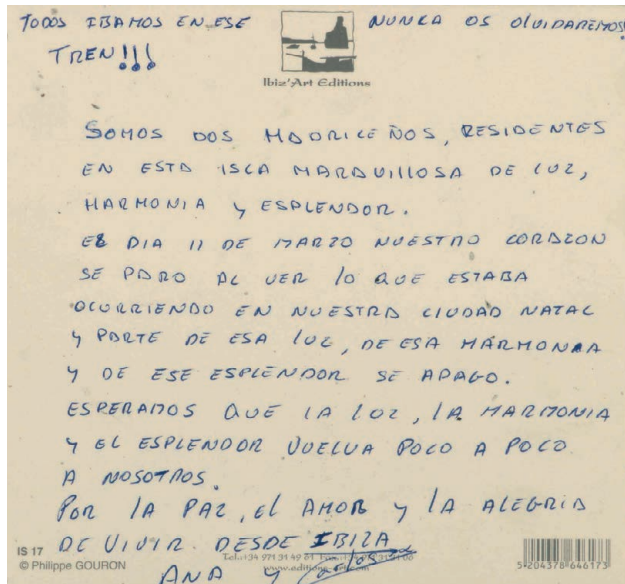 TODOS IBAMOS EN ESE
TREN!!!
NUNCA OS OLVIDAREMOS
Ibiz'Art Editions
SOMOS DOS MADRILEÑOS, RESIDENTES
EN ESTA ISLA MARAVILLOSA DE LUZ,
HARMONIA Y ESPLENDOR.
EL DIA 11 DE MARZO NUESTRO CORAZON
SE PARO AL VER LO QUE ESTABA
OCURRIENDO EN NUESTRA CIUDAD NATAL
Y PARTE DE ESA LUZ, DE ESA HARMONIA
Y DE ESE ESPLENDOR SE APAGO.
ESPERAMOS QUE LA LUZ, LA HARMONIA
Y EL ESPLENDOR VUELVA POCO A POCO
A NOSOTROS.
POR LA PAZ, EL AMOR Y LA ALEGRIA
DE VIVIR. DESDE IBIZA
ANA Y Carlos
IS 17
© Philippe GOURON
Tel.:+34 971 31 49 61
5204378646173